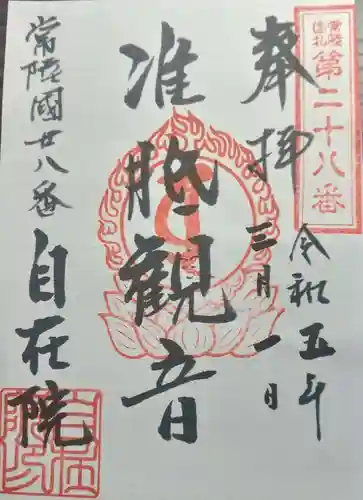 常陸
巡礼
第二十八番
奉拝
令和五年
三月一日
准胝観音
常陸國廿八番
自在院